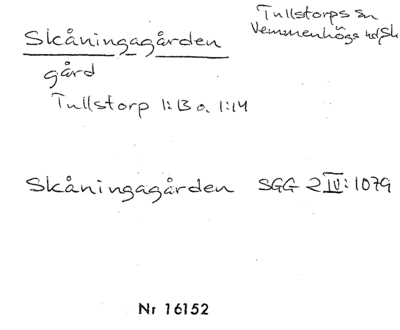 Skåningagården
Tullstorps sn
Vemmenhögs hd, Sk
gård
Tullstorp 1:13 o. 1:14
Skåningagården SGG 2 IV: 1079
Nr 16152